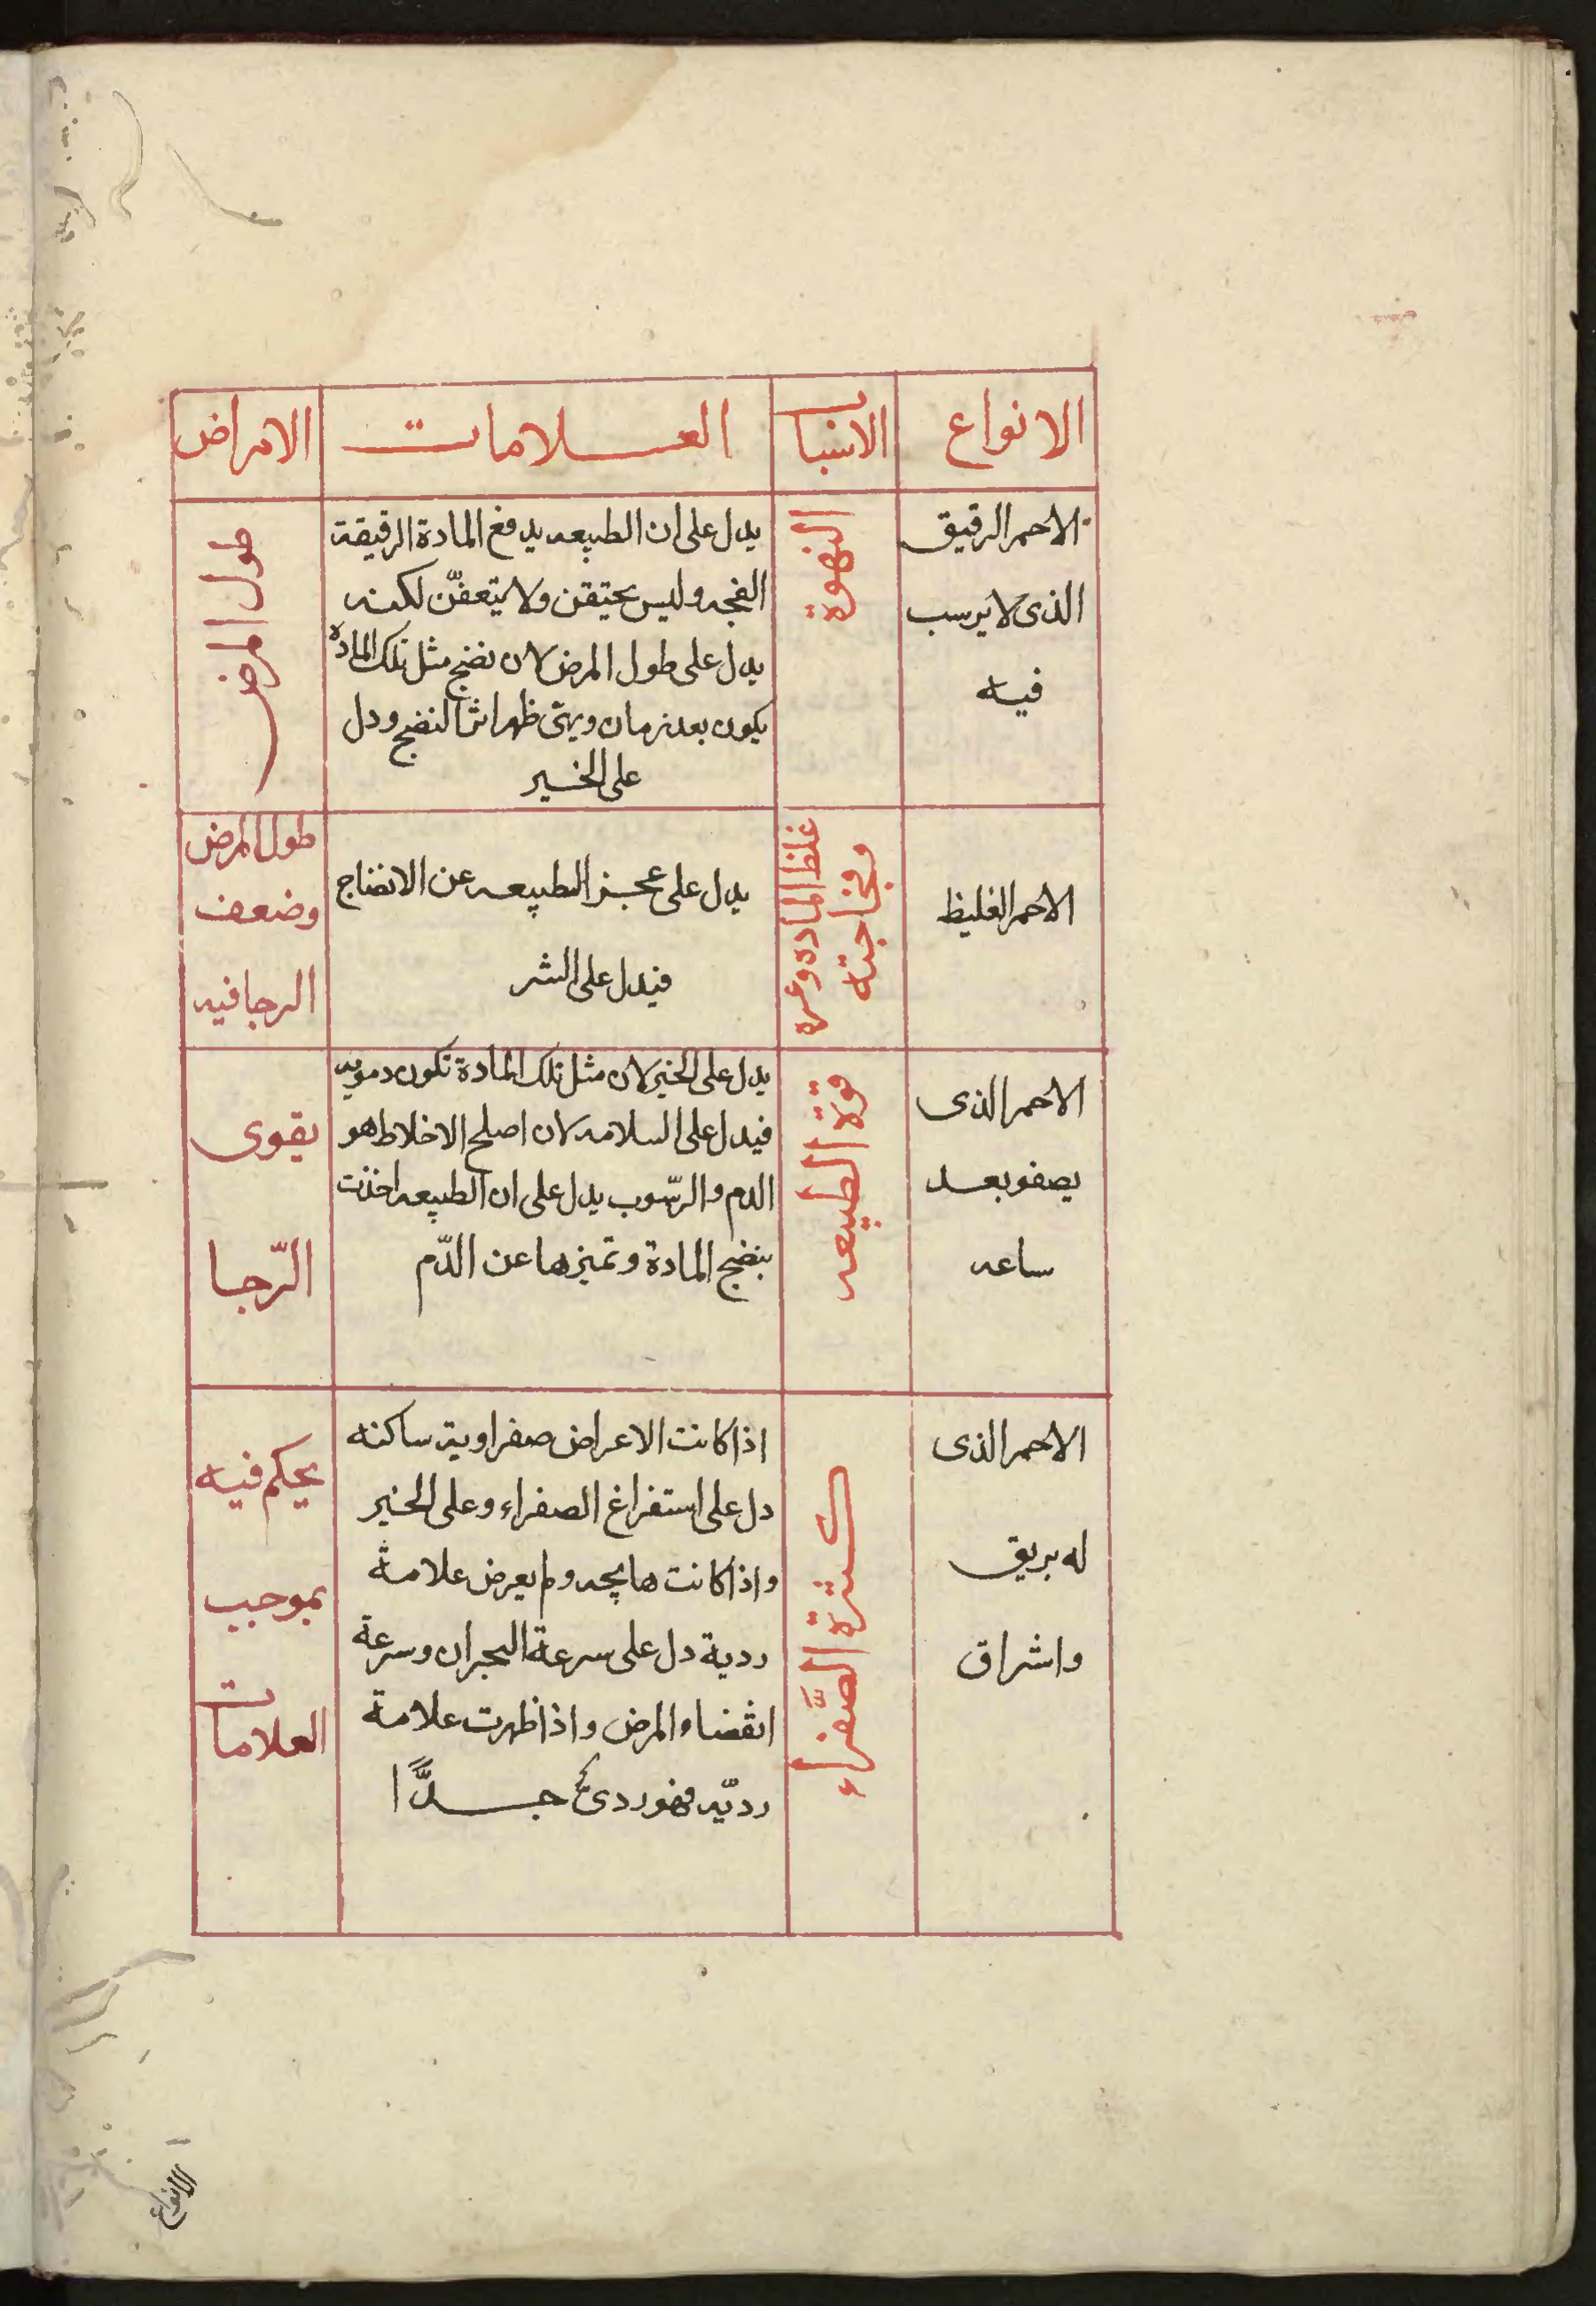 الانواع
الاسباب
العلامات
الامراض
الاحمر الرقيق
الذى لا يرسب
فيه
النهوة
يدل على ان الطبيعه يدفع المادة الرقيقة
الفجه وليس يحتقن ولا يتعفّن لكنه
يدل على طول المرض لان نضج مثل تلك الماده
يكون بعد زمان ومتى ظهر اثر النضج ودل
على الخير
طول المرض
الاحمر الغليظ
غلظ الماده
وفجاجته
يدل على عجز الطبيعه عن الانضاج
فيدل على الشر
طول المرض
وضعف
الرجا فيه
الاحمر الذى
يصفو بعد
ساعه
قوة الطبيعه
يدل على الخير لان مثل تلك المادة تكون دمويه
فيدل على السلامه لان اصلح الاخلاط هو
الدم والرّسوب يدل على ان الطبيعه اخذت
بنضج المادة وتميزها عن الدّم
يقوى
الرّجا
الاحمر الذى
له بريق
واشراق
كثرة الصّفراء
اذا كانت الاعراض صفراوية ساكنه
دل على استفراغ الصفراء وعلى الخير
واذا كانت هايجه ولم يعرض علامة
ردية دل على سرعة البحران وسرعة
انقضاء المرض واذا ظهرت علامة
رديّه فهو ردئ جدًّا
يحكم فيه
بموجب
العلامات
الانواع